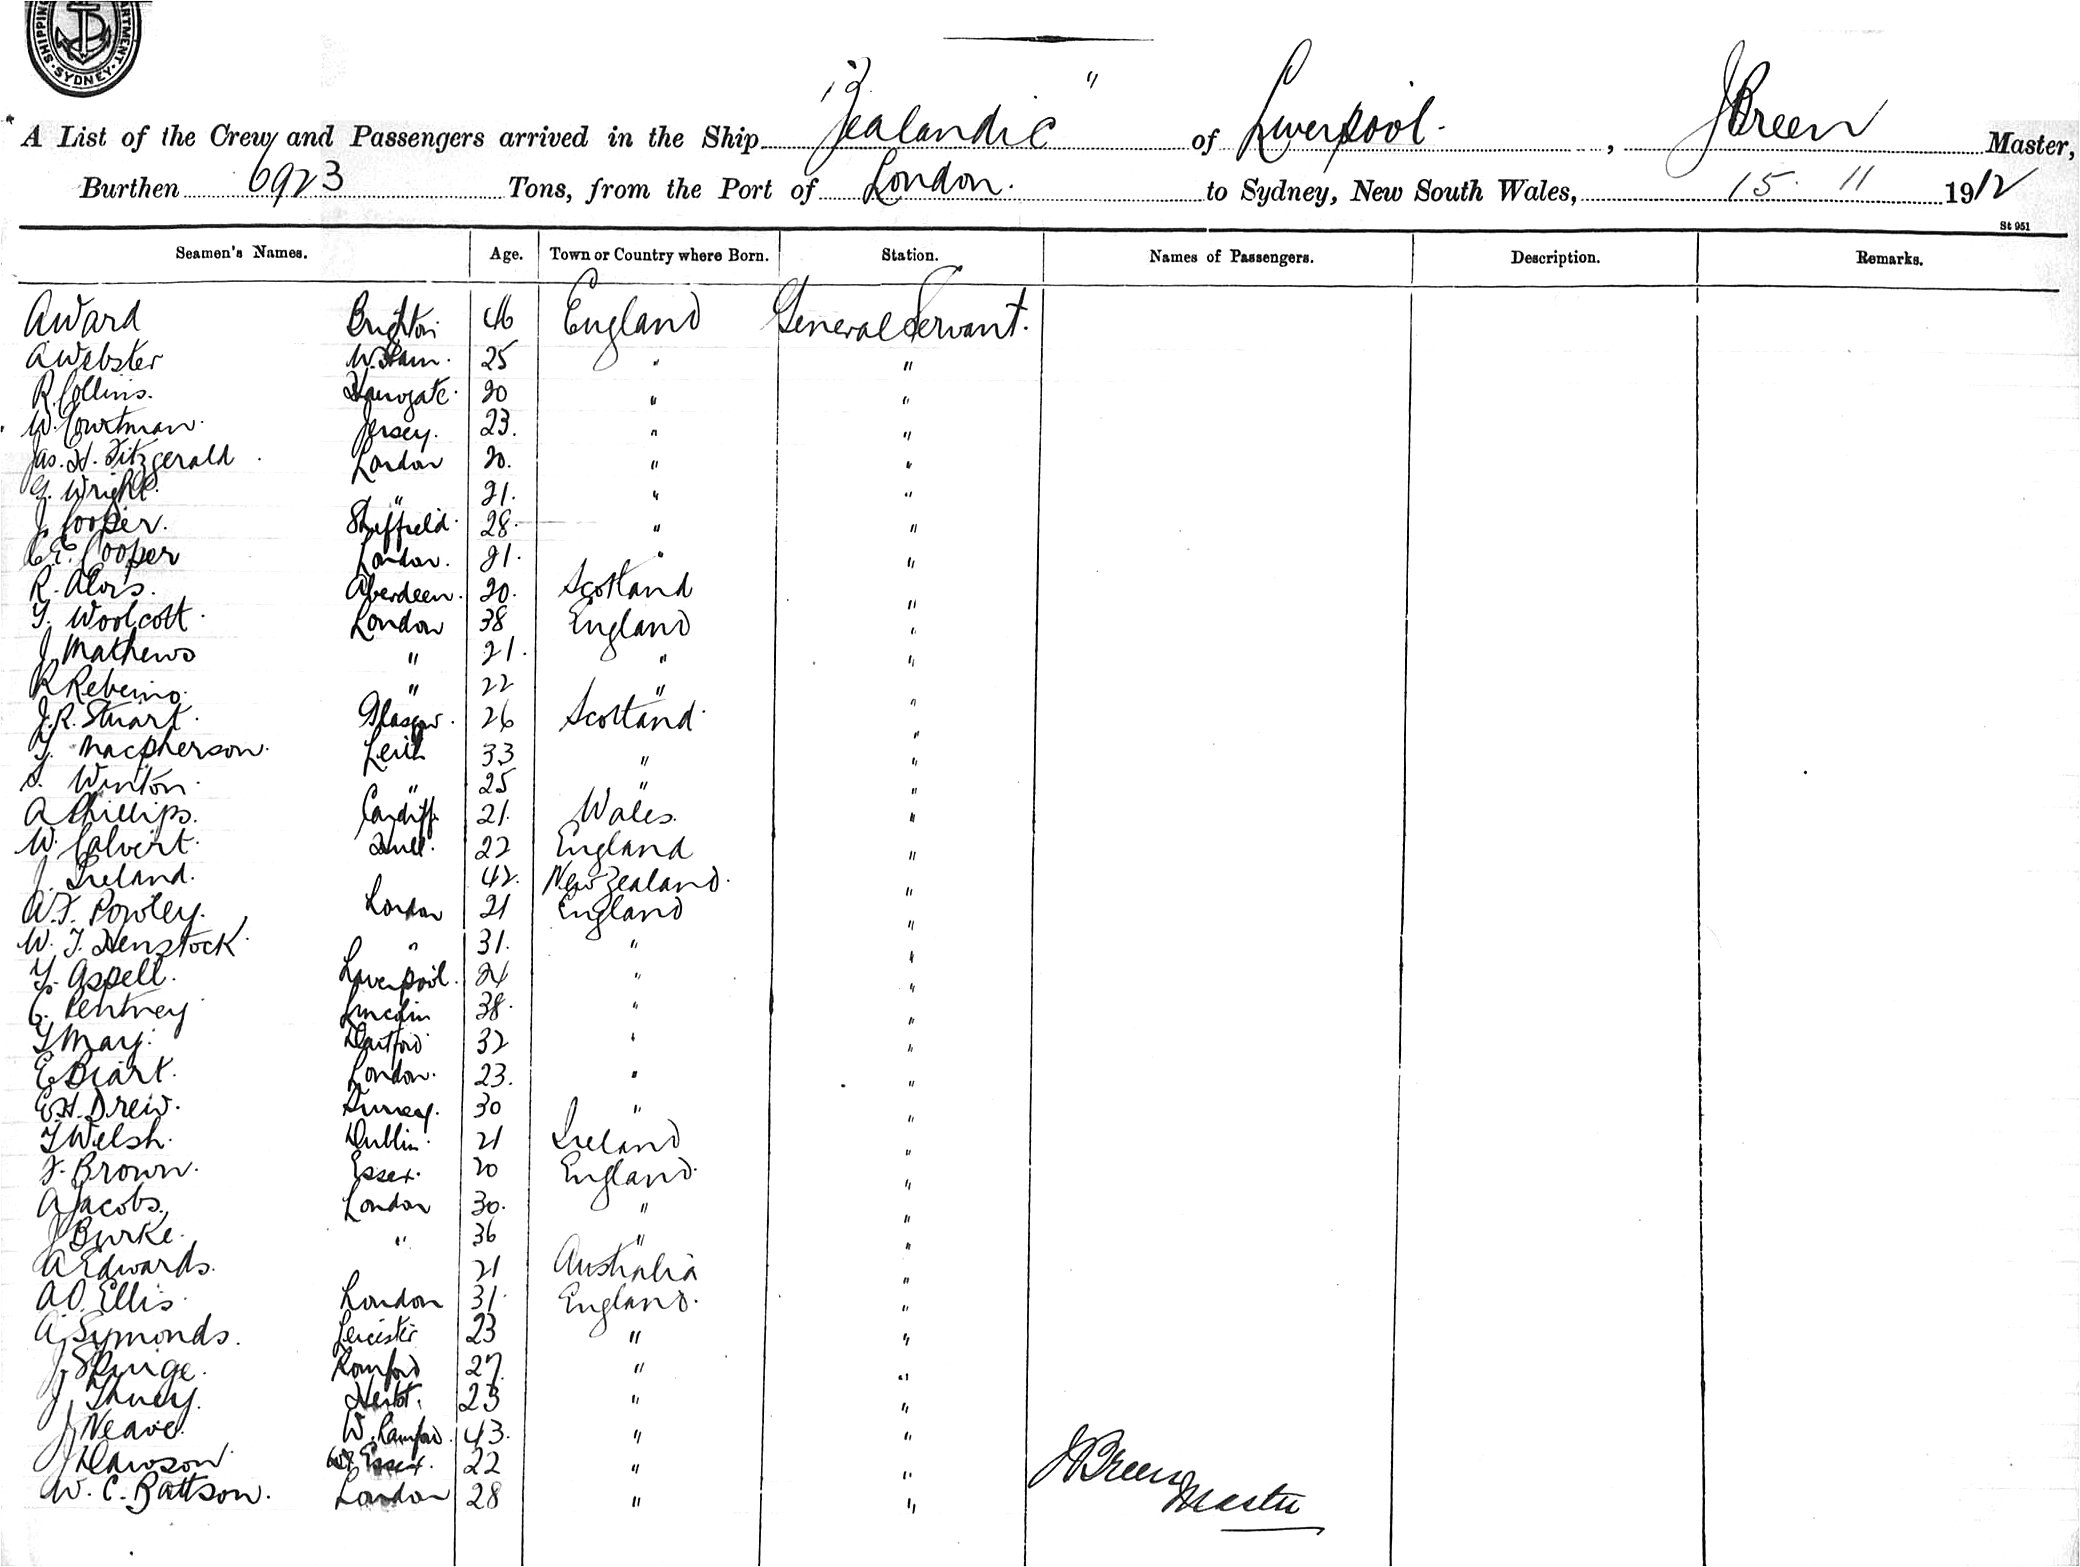 SHIPPING DEPARTMENT. SYDNEY.
A List of the Crew and Passengers arrived in the Ship "Zealandic" of Liverpool, J Breen Master,
Burthen 6923 Tons, from the Port of London. to Sydney, New South Wales, 15. 11 1912
St 951
Seamen's Names. Age. Town or Country where Born. Station. Names of Passengers. Description. Remarks.
A Ward Brighton 46 England General Servant.
A Webster W. Ham. 25 " "
R. Collins. Harrogate. 20 " "
W. Courtman. Jersey. 23. " "
Jas. H. Fitzgerald London 20. " "
G. Wright. " 21. " "
J. Cooper. Sheffield. 28. " "
C.E. Cooper London. 21. " "
R. Aberdeen. 20. Scotland "
T. Woolcott. London 38 England "
J. Mathews " 21. " "
R Rebeino. " 22 " "
J.R. Stuart. Glasgow. 26 Scotland. "
T. Macpherson. Leith 33 " "
S. Winton. " 25 " "
A Phillips. Cardiff 21. Wales. "
W. Calvert. Hull. 22 England "
J. Ireland. 42. New Zealand. "
A.F. Powley. London 21 England "
W. T. Henstock. " 31. " "
T. Aspell. Liverpool. 24 " "
C. Pentney Lincoln 38. " "
T May. Dartford 32 " "
E Biart. London. 23. " "
E.H. Drew. Surrey. 30 " "
T Welsh. Dublin. 21 Ireland "
F. Brown. Essex. 20 England. "
A Jacobs. London 30. " "
J Burke. " 36 " "
A Edwards. 21 Australia "
A.O. Ellis. London 31. England. "
A. Symonds. Leicester 23 " "
J. Romford 27 " "
J. 23 " "
J Neave. W. 43. " "
J Dawson. Essex. 22 " "
W. C. Battson. London 28 " "
J Breen
Master